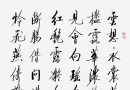 雲想衣裳
檻露華濃
見會向瑤
紅艷露凝
斷腸借問
憐飛燕倚